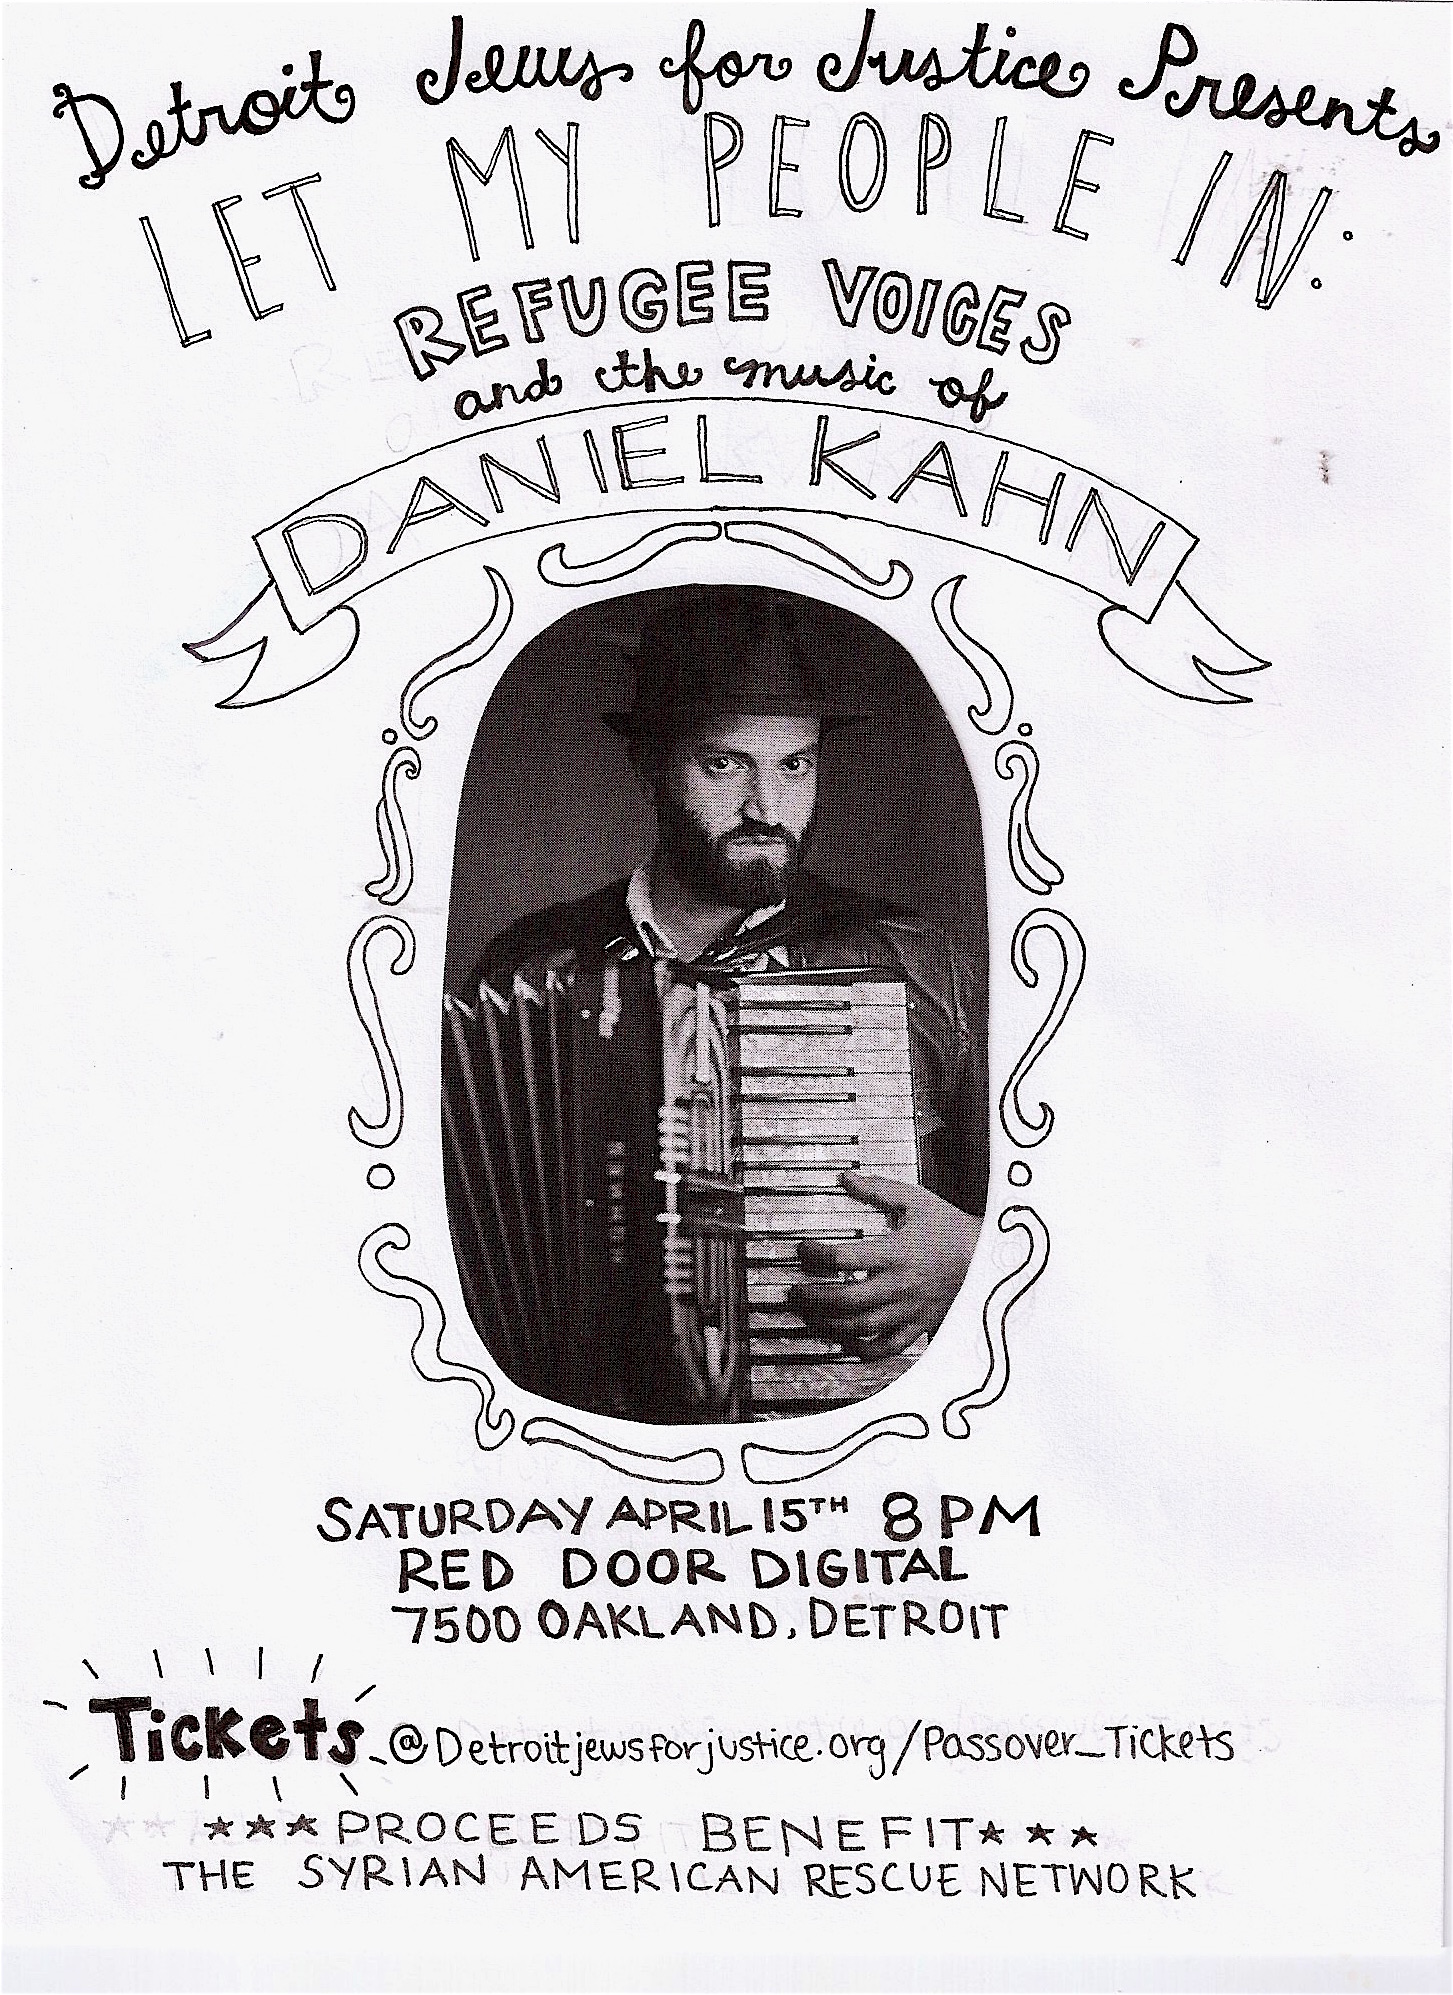 Detroit Jews for Justice Presents
LET MY PEOPLE IN:
REFUGEE VOICES
and the music of
DANIEL KAHN
SATURDAY APRIL 15TH 8 PM
RED DOOR DIGITAL
7500 OAKLAND, DETROIT
Tickets @Detroitjewsforjustice.org/Passover_Tickets
★★★ PROCEEDS BENEFIT ★★★
THE SYRIAN AMERICAN RESCUE NETWORK